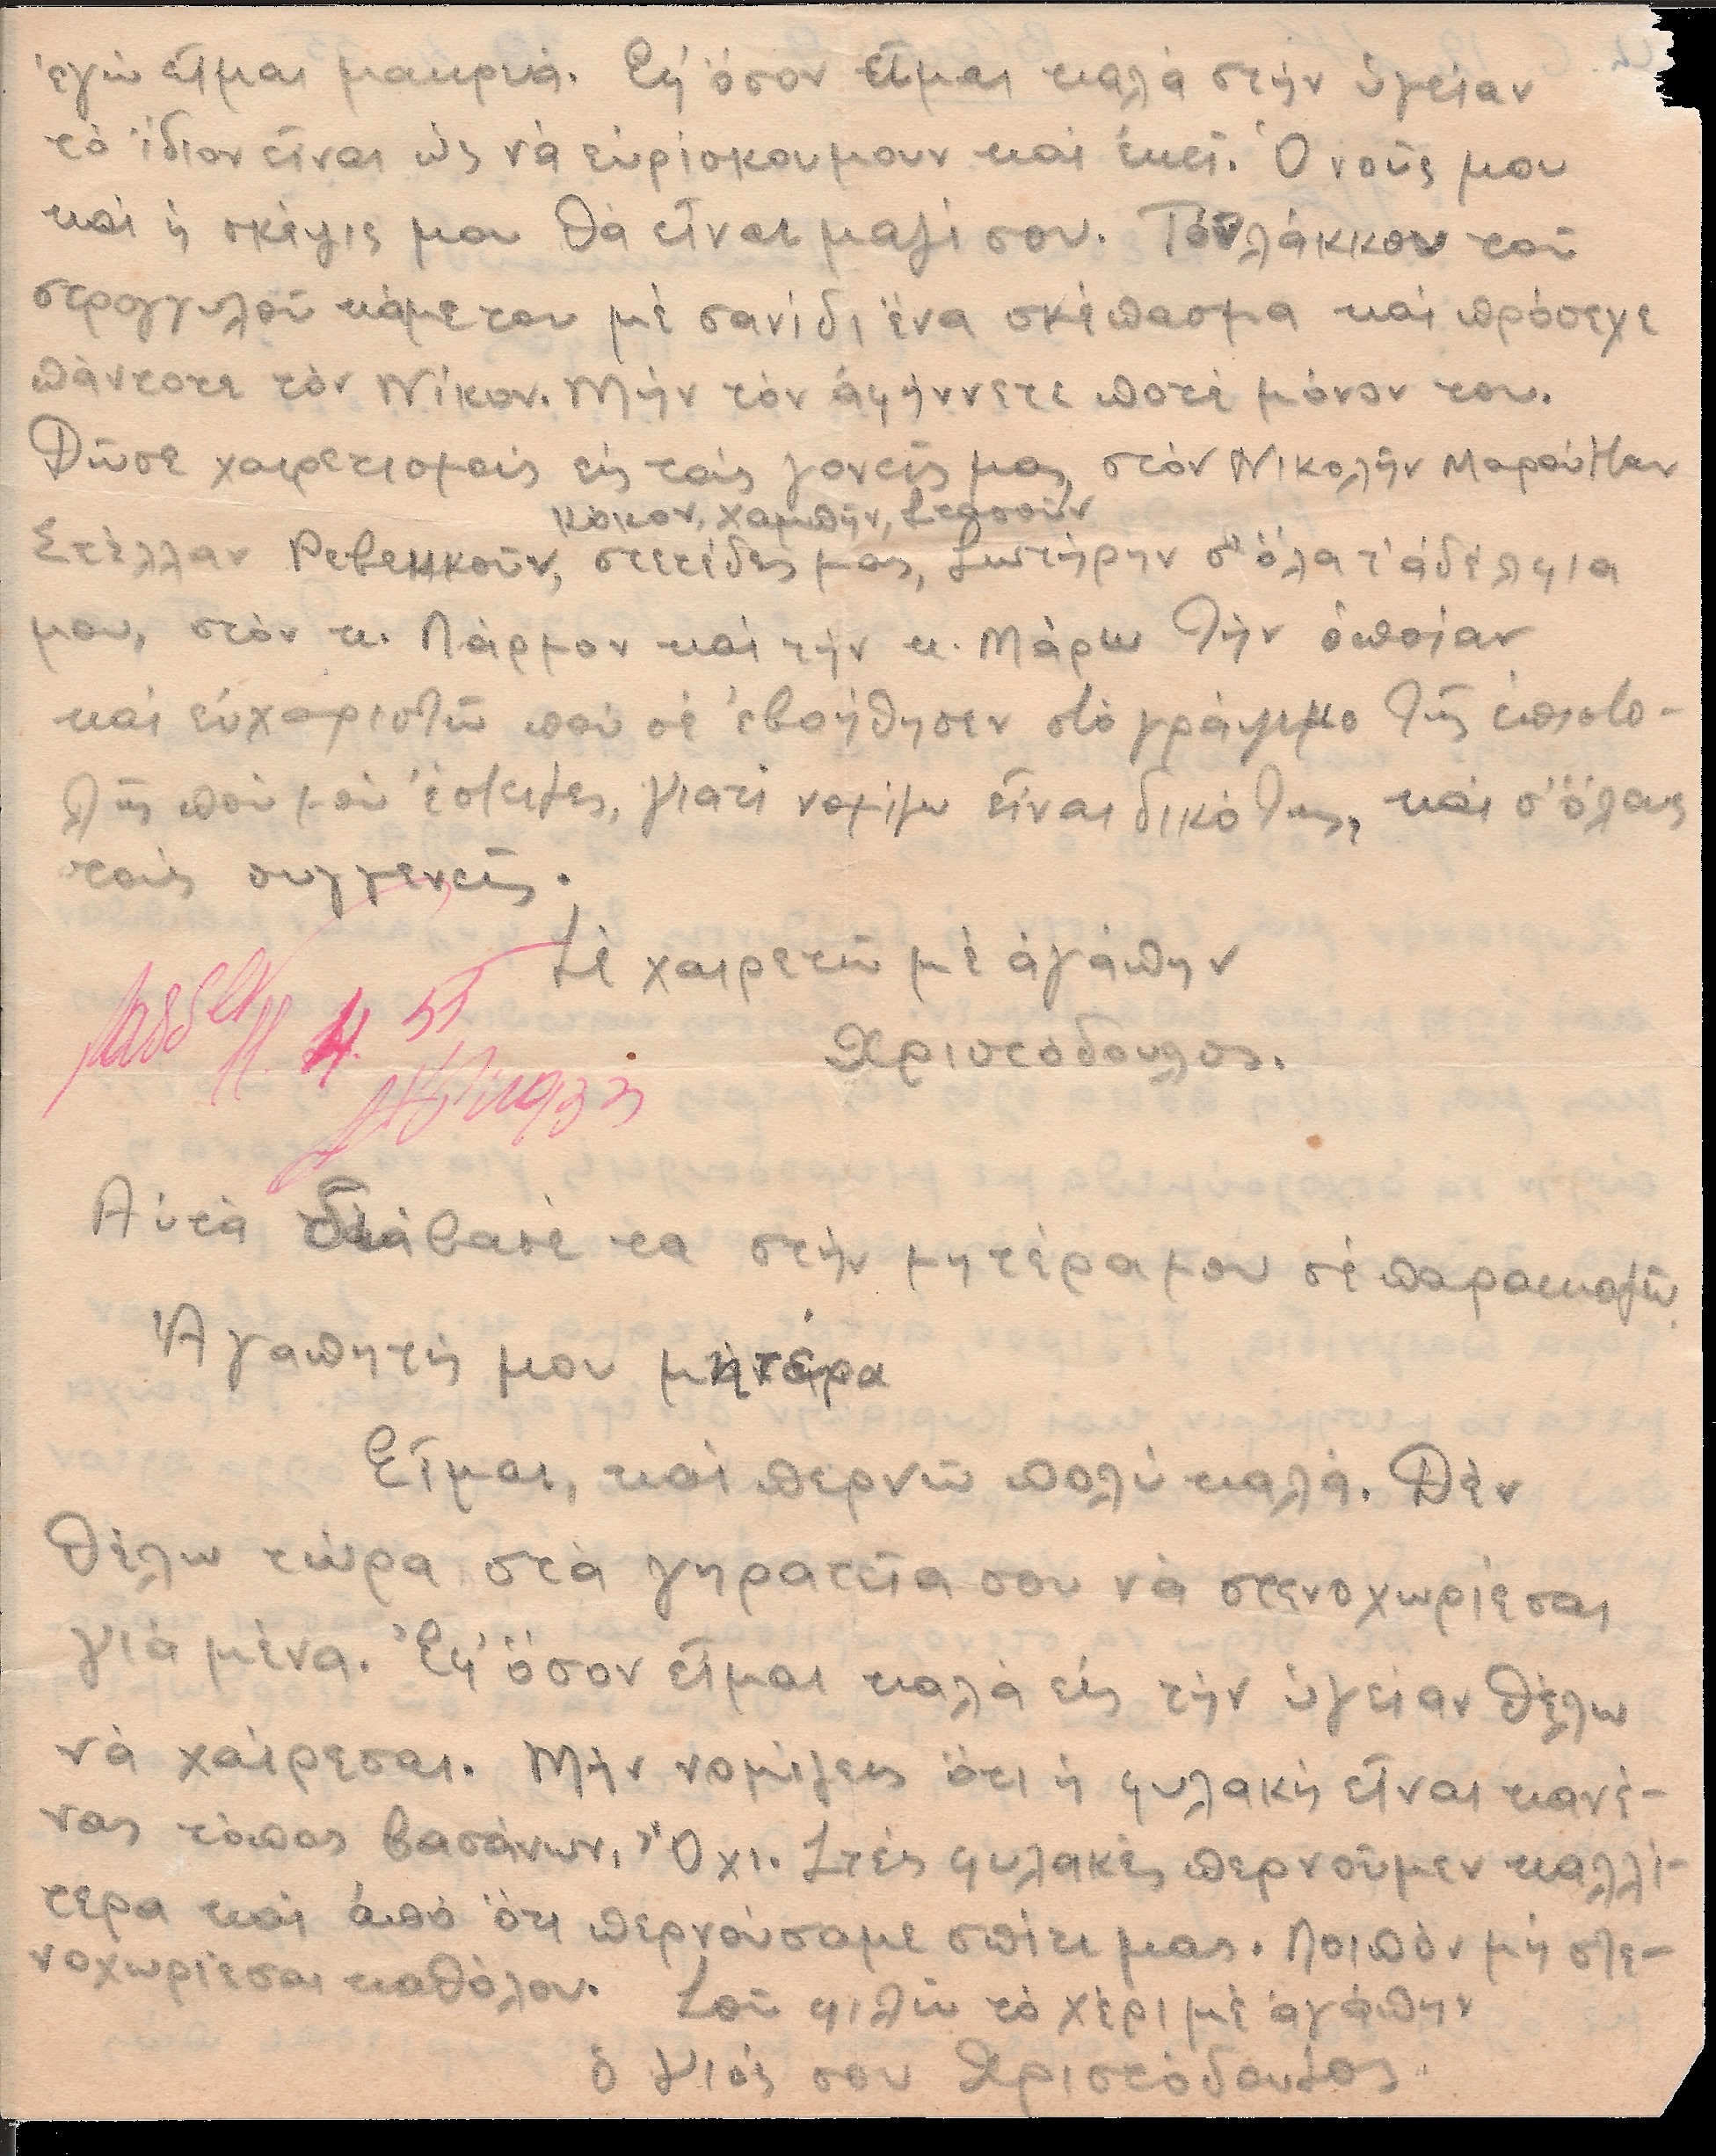 ἐγὼ εἶμαι μακρυά. Ἐφ' ὅσον εἶμαι καλά στήν ὑγείαν
τό ἴδιον εἶναι ὡς νά εὑρίσκουμουν καί ἐκεῖ. Ὁ νοῦς μου
καί ἡ σκέψις μου θά εἶναι μαζί σου. Τόν λάκκον τοῦ
στρογγυλοῦ κάμε του μέ σανίδι ἕνα σκέπασμα καί πρόσεχε
πάντοτε τόν Νίκον. Μήν τόν ἀφήννετε ποτέ μόνον του.
Δῶσε χαιρετισμούς εἰς τούς γονεῖς μας, στόν Νικολῆν Μαρούλλαν
Κόκον, Χαμπῆν, Στασοῦν
Στέλλαν Ρεβεκκοῦν, στετέδες μας, Σωτήρην σ' ὅλα τ' ἀδέλφια
μου, στόν κ. Λάρμον καί τήν κ. Μάρω τήν ὁποίαν
καί εὐχαριστῶ πού σέ ἐβοήθησεν στό γράψιμο τῆς ἐπιστο-
λῆς πού μοῦ ἔστειλες, γιατί νομίζω εἶναι δικό της, καί σ' ὅλους
τούς συγγενεῖς.
Σέ χαιρετῶ μέ ἀγάπην
Χριστόδουλος.
11. 4. 55
Αὐτά διάβασέ τα στήν μητέρα μου σέ παρακαλῶ
Ἀγαπητή μου μητέρα
Εἶμαι, καί περνῶ πολύ καλά. Δέν
θέλω τώρα στά γηρατεῖα σου νά στενοχωρίεσαι
γιά μένα. Ἐφ' ὅσον εἶμαι καλά εἰς τήν ὑγείαν θέλω
νά χαίρεσαι. Μήν νομίζεις ὅτι ἡ φυλακή εἶναι κανέ-
νας τόπος βασάνων, Ὄχι. Στές φυλακές περνοῦμεν καλλί-
τερα καί ἀπό ὅτι περνούσαμε σπίτι μας. Λοιπόν μή στε-
νοχωρίεσαι καθόλου. Σοῦ φιλῶ τό χέρι μέ ἀγάπην
ὁ γιός σου Χριστόδουλος.